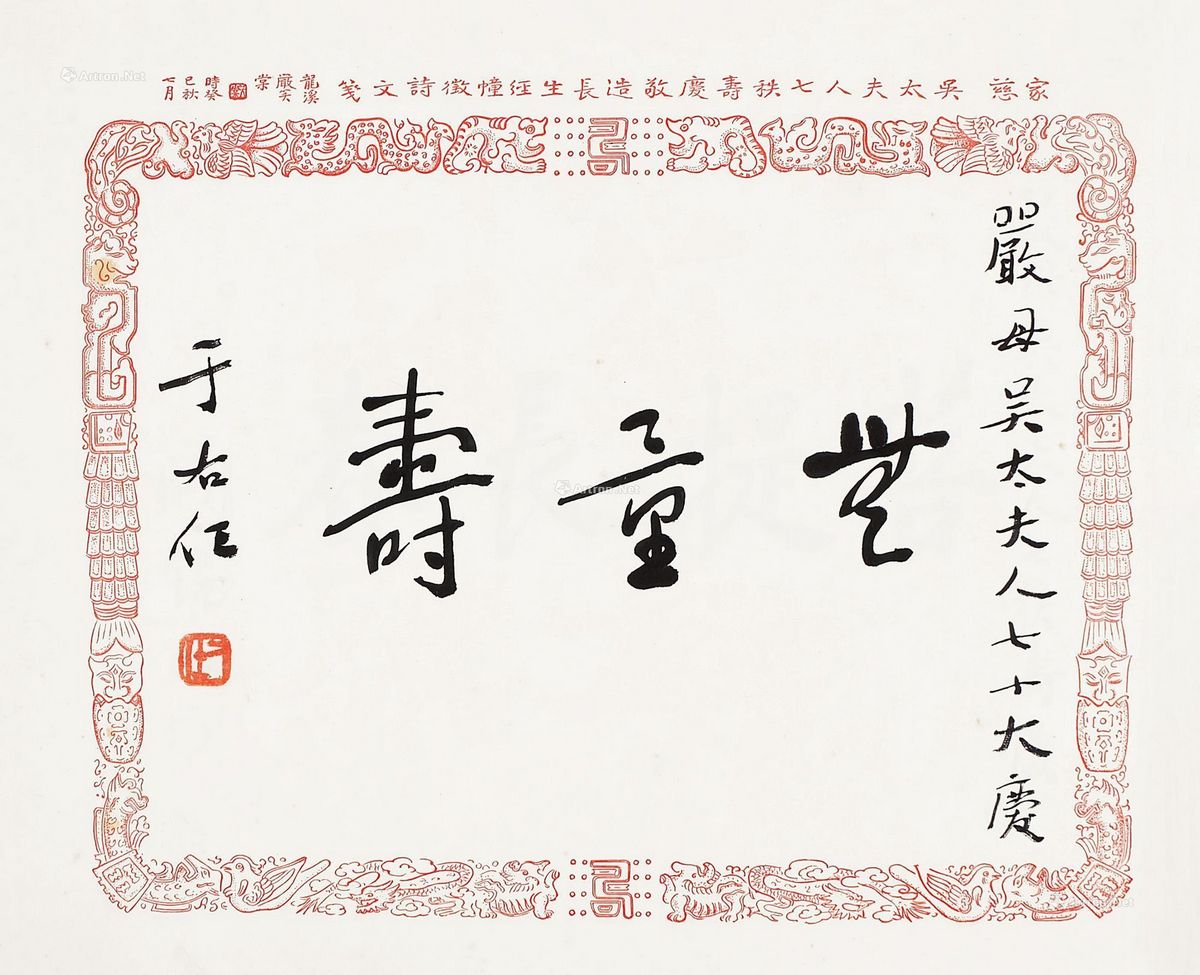 家慈吳太夫人七秩壽慶敬造長生經幢徵詩文箋
龍溪
嚴笑
棠
時癸
巳秋
七月
嚴母吴太夫人七十大慶
無量壽
于右任
Artron.Net
Artron.Net